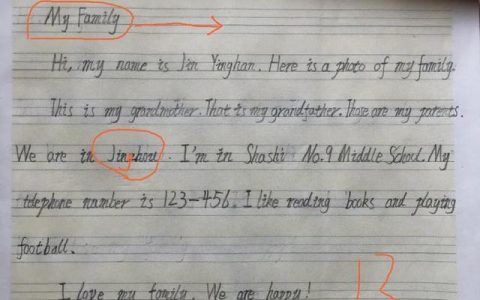 My Family
Hi, my name is Jin Yinghan. Here is a photo of my family.
This is my grandmother. That is my grandfather. Those are my parents.
We are in Jingzhou. I'm in Shashi No.9 Middle School. My
telephone number is 123-456. I like reading books and playing
football.
I love my family. We are happy!
13